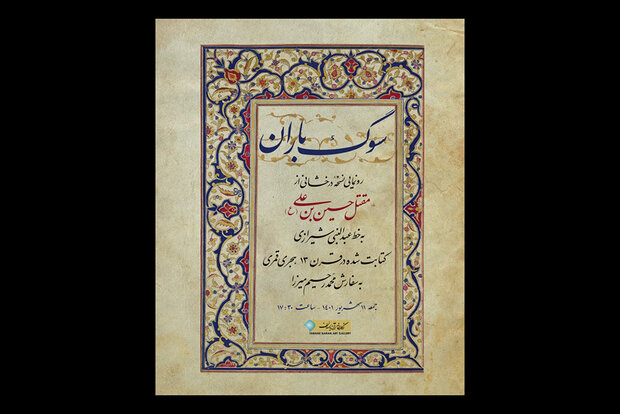 سوگ باران
رونمایی نسخۀ درخشانی از
مقتل حسین بن علی (ع)
به خط عبدالنبی شیرازی
کتابت شده در قرن ۱۳ هجری قمری
به سفارش محمد رحیم میرزا
جمعه ۱۱ شهریور ۱۴۰۱ - ساعت ۱۷:۳۰
TARAHI BARAN ART GALLERY